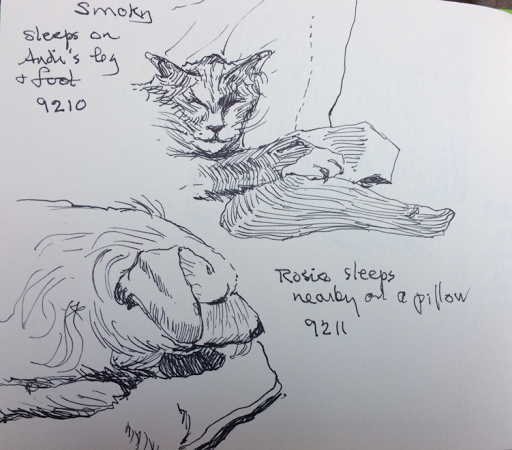 Smoky
sleeps on
Andi's leg
+ foot
9210
Rosie sleeps
nearby on a pillow
9211